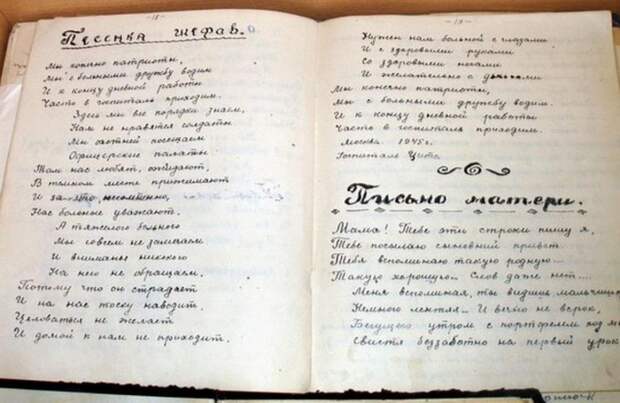 - 18 -
Песенка шефав.
Мы конечно патриоты,
Мы с больными дружбу водим
И к концу дневной работы
Часто в госпиталь приходим.
Здесь мы все порядки знаем,
Нам не нравятся солдаты
Мы охотней посещаем
Офицерские палаты
Там нас любят, ожидают,
В тёмном месте прижимают
И за это несомненно,
Нас больные уважают.
А тяжелого больного
Мы совсем не замечаем
И вниманья никакого
На него не обращаем,
Потому что он страдает
И на нас тоску наводит.
Целоваться не желает
И домой к нам не приходит.
- 19 -
Нужен нам больной с глазами
И с здоровыми руками
Со здоровыми ногами
И желательно с
Мы конечно патриоты,
Мы с больными дружбу водим.
И к концу дневной работы
Часто в госпиталь приходим.
Москва 1945 г.
Госпиталь Цито
Письмо матери.
Мама! Тебе эти строки пишу я,
Тебе посылаю сыновний привет
Тебя вспоминаю такую родную...
Такую хорошую.. Слов даже нет...
Меня вспоминая, ты видишь мальчишку
Немного лентяя.. И вечно не в срок,
Бегущего утром с портфелем под
Свистя беззаботно на первый урок